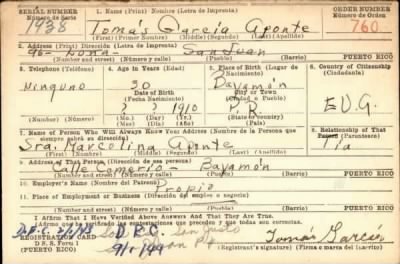 SERIAL NUMBER 1. Name (Print) Nombre (Letra de Imprenta) ORDER NUMBER
Número de Serie Número de Orden
1938 Tomás García Aponte 760
(First) (Primer Nombre) (Middle) (Segundo Nombre) (Last) (Apellido)
2. Address (Print) Dirección (Letra de Imprenta)
96- Luna- San Juan
(Number and street) (Número y calle) (Town) (Ciudad o Pueblo) PUERTO RICO
3. Telephone (Teléfono) 4. Age in Years (Edad) 5. Place of Birth (Lugar de Nacimiento) 6. Country of Citizenship (Ciudadanía)
Ninguno 30 Bayamón
Date of Birth City or Town
(Fecha Nacimiento) (Ciudad o Pueblo)
1910 P.R. E.U.G.
(Number) (Número) (Mo.) (Mes) (Day) (Día) (Yr.) (Año) State or County
(País)
7. Name of Person Who Will Always Know Your Address (Nombre de la Persona que siempre sabrá su dirección) 8. Relationship of That Person (Parentesco)
Sra. Marcolina Aponte Tía
(First) (Primer Nombre) (Middle) (Segundo Nombre) (Last) (Apellido)
9. Address of That Person (Dirección de esa persona)
Calle Comerio- Bayamón
(Number and street) (Número y calle) (Town) (Ciudad o Pueblo) PUERTO RICO
10. Employer's Name (Nombre del Patrono)
Propio
11. Place of Employment or Business (Dirección del empleo o negocio)
(Number and street) (Número y calle) (Town) (Ciudad o Pueblo) PUERTO RICO
I Affirm That I Have Verified Above Answers And That They Are True.
Afirmo que he verificado las contestaciones que preceden y que todas son correctas.
REGISTRATION CARD
D.S.S. Form 1
(PUERTO RICO)
Tomás García
Registrant's signature (Firma o marca del inscrito)